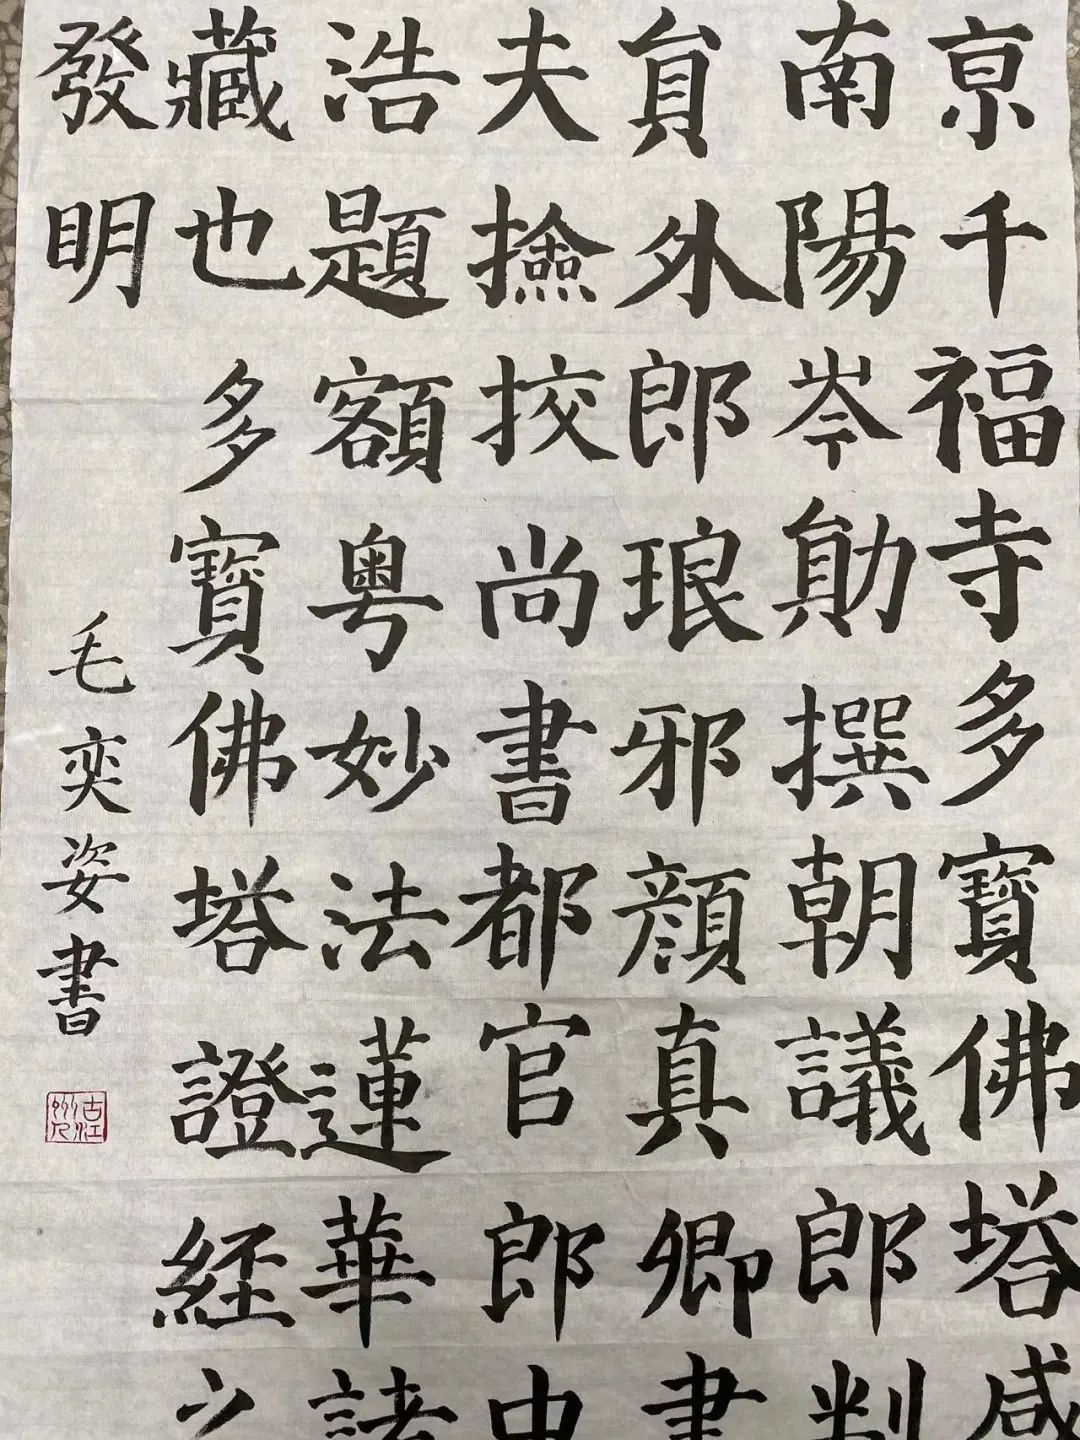 亰千福寺多寶佛塔感
南陽岑勛撰朝議郎判
員外郎琅邪顏真卿書
夫撿挍尚書都官郎中
浩題額粵妙法蓮華諸
藏也多寶佛塔證經之
發明
毛奕姿書
古江州人